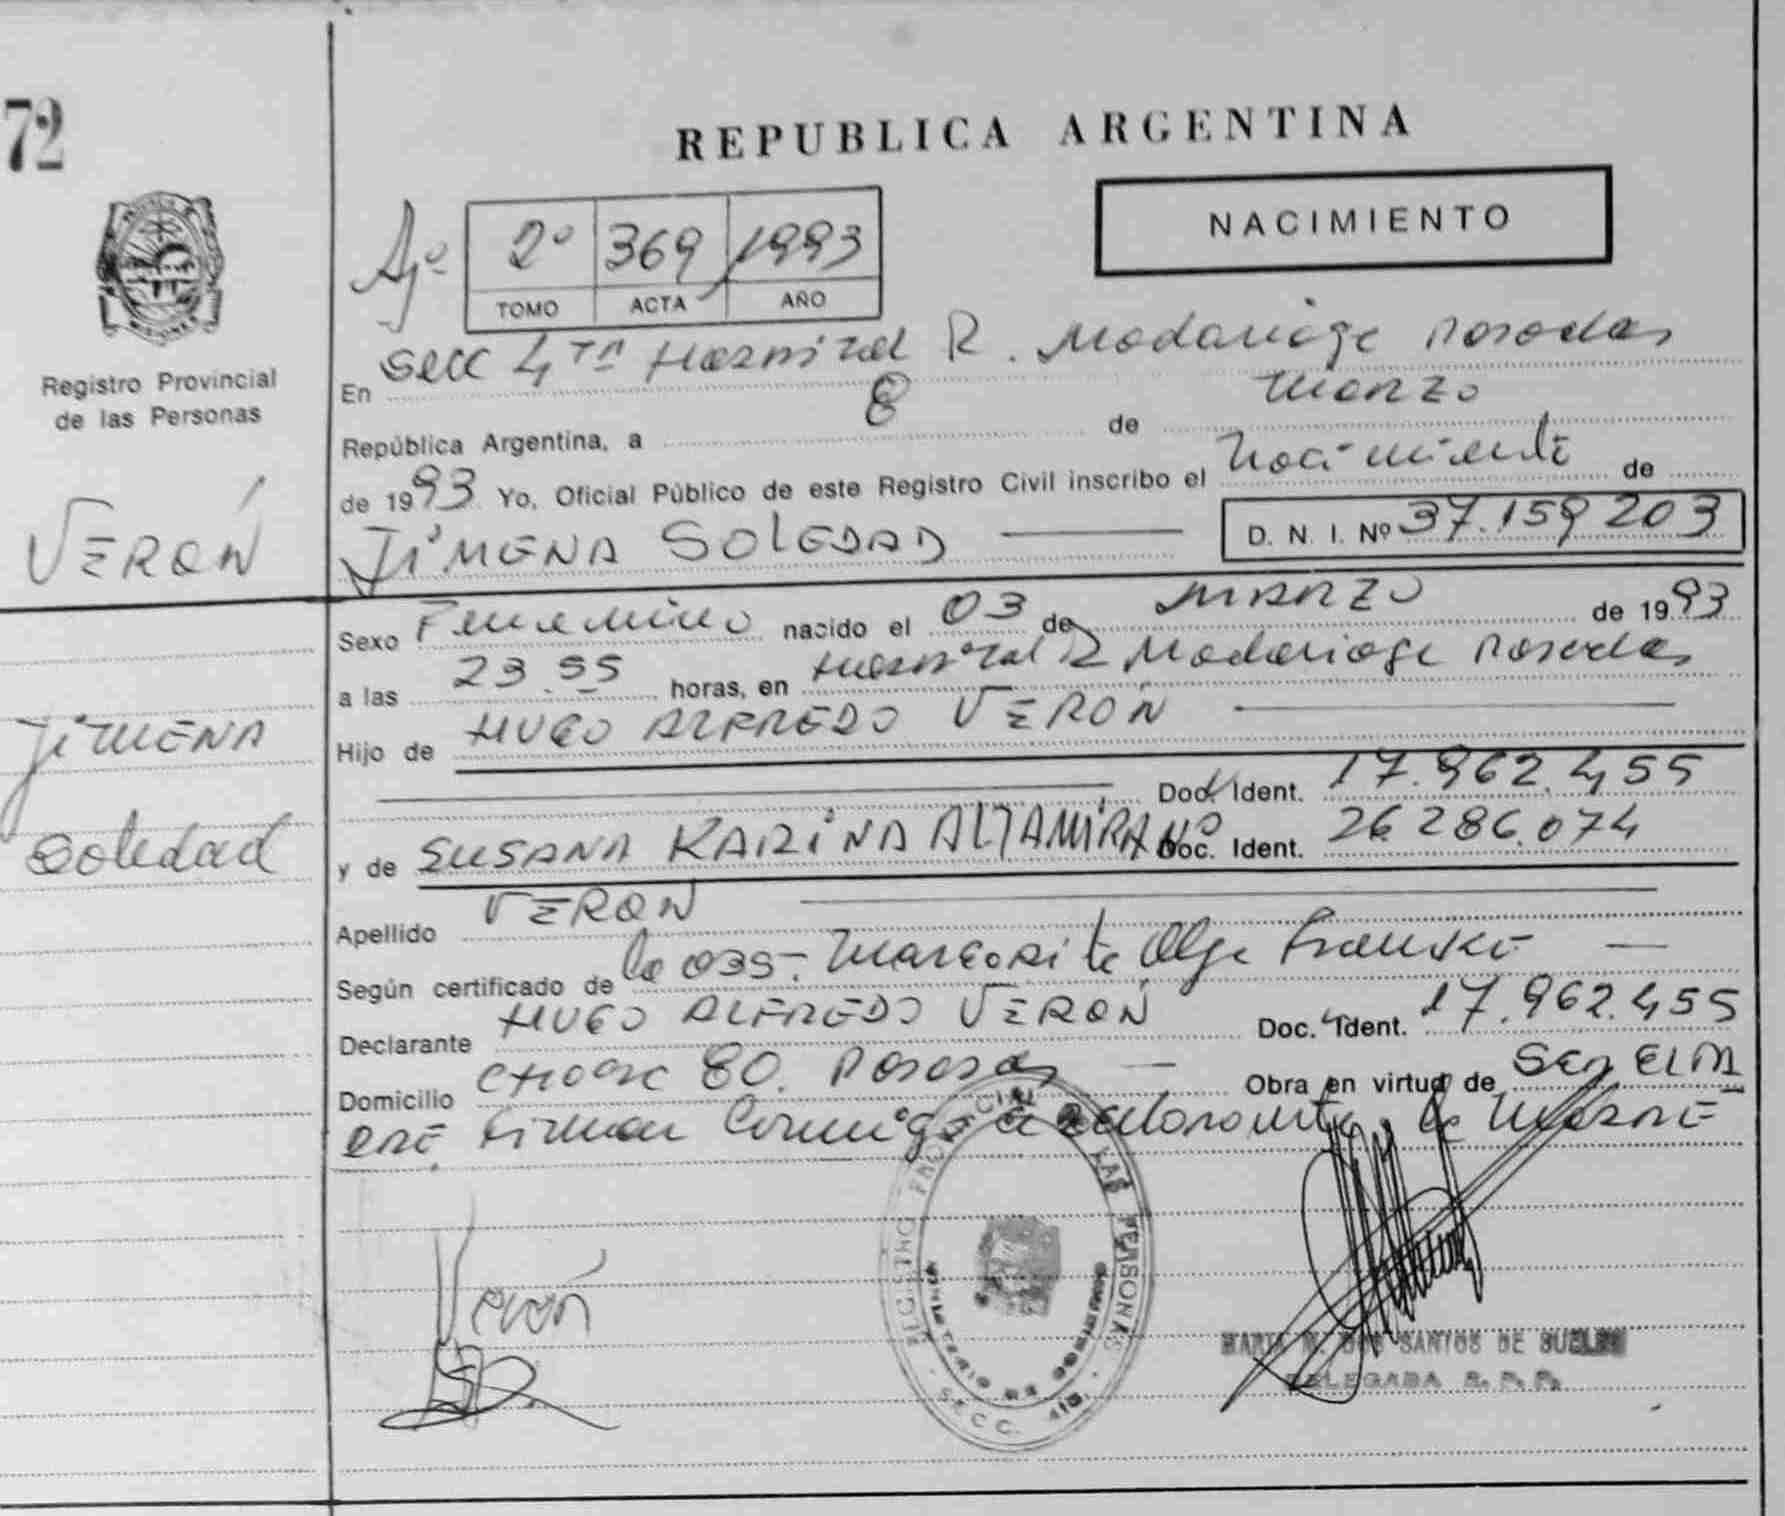 72
REPUBLICA ARGENTINA
NACIMIENTO
Aº 2º 369 1993
TOMO ACTA AÑO
Registro Provincial
de las Personas
VERÓN
JIMENA
Soledad
En Secc 4ta Hospital R. Madariaga Posadas
República Argentina, a 8 de marzo
de 1993 Yo, Oficial Público de este Registro Civil inscribo el Nacimiento de
JIMENA SOLEDAD D. N. I. Nº 37.159.203
Sexo Femenino nacido el 03 de MARZO de 1993
a las 23.55 horas, en Hospital R Madariaga Posadas
Hijo de HUGO ALFREDO VERÓN
Doc. Ident. 17.962.455
y de SUSANA KARINA ALTAMIRANO Doc. Ident. 26.286.074
Apellido VERÓN
Según certificado de la obs. Margarita Olga
Declarante HUGO ALFREDO VERÓN Doc. Ident. 17.962.455
Domicilio 80. Posadas Obra en virtud de Ser EL PA
DRE. Firman Conmigo el declarante y la MADRE
Verón
REGISTRO PROVINCIAL DE LAS PERSONAS
MINISTERIO DE GOBIERNO
SECC. 4ta
MARIA DOS SANTOS DE
DELEGADA R. P. P.